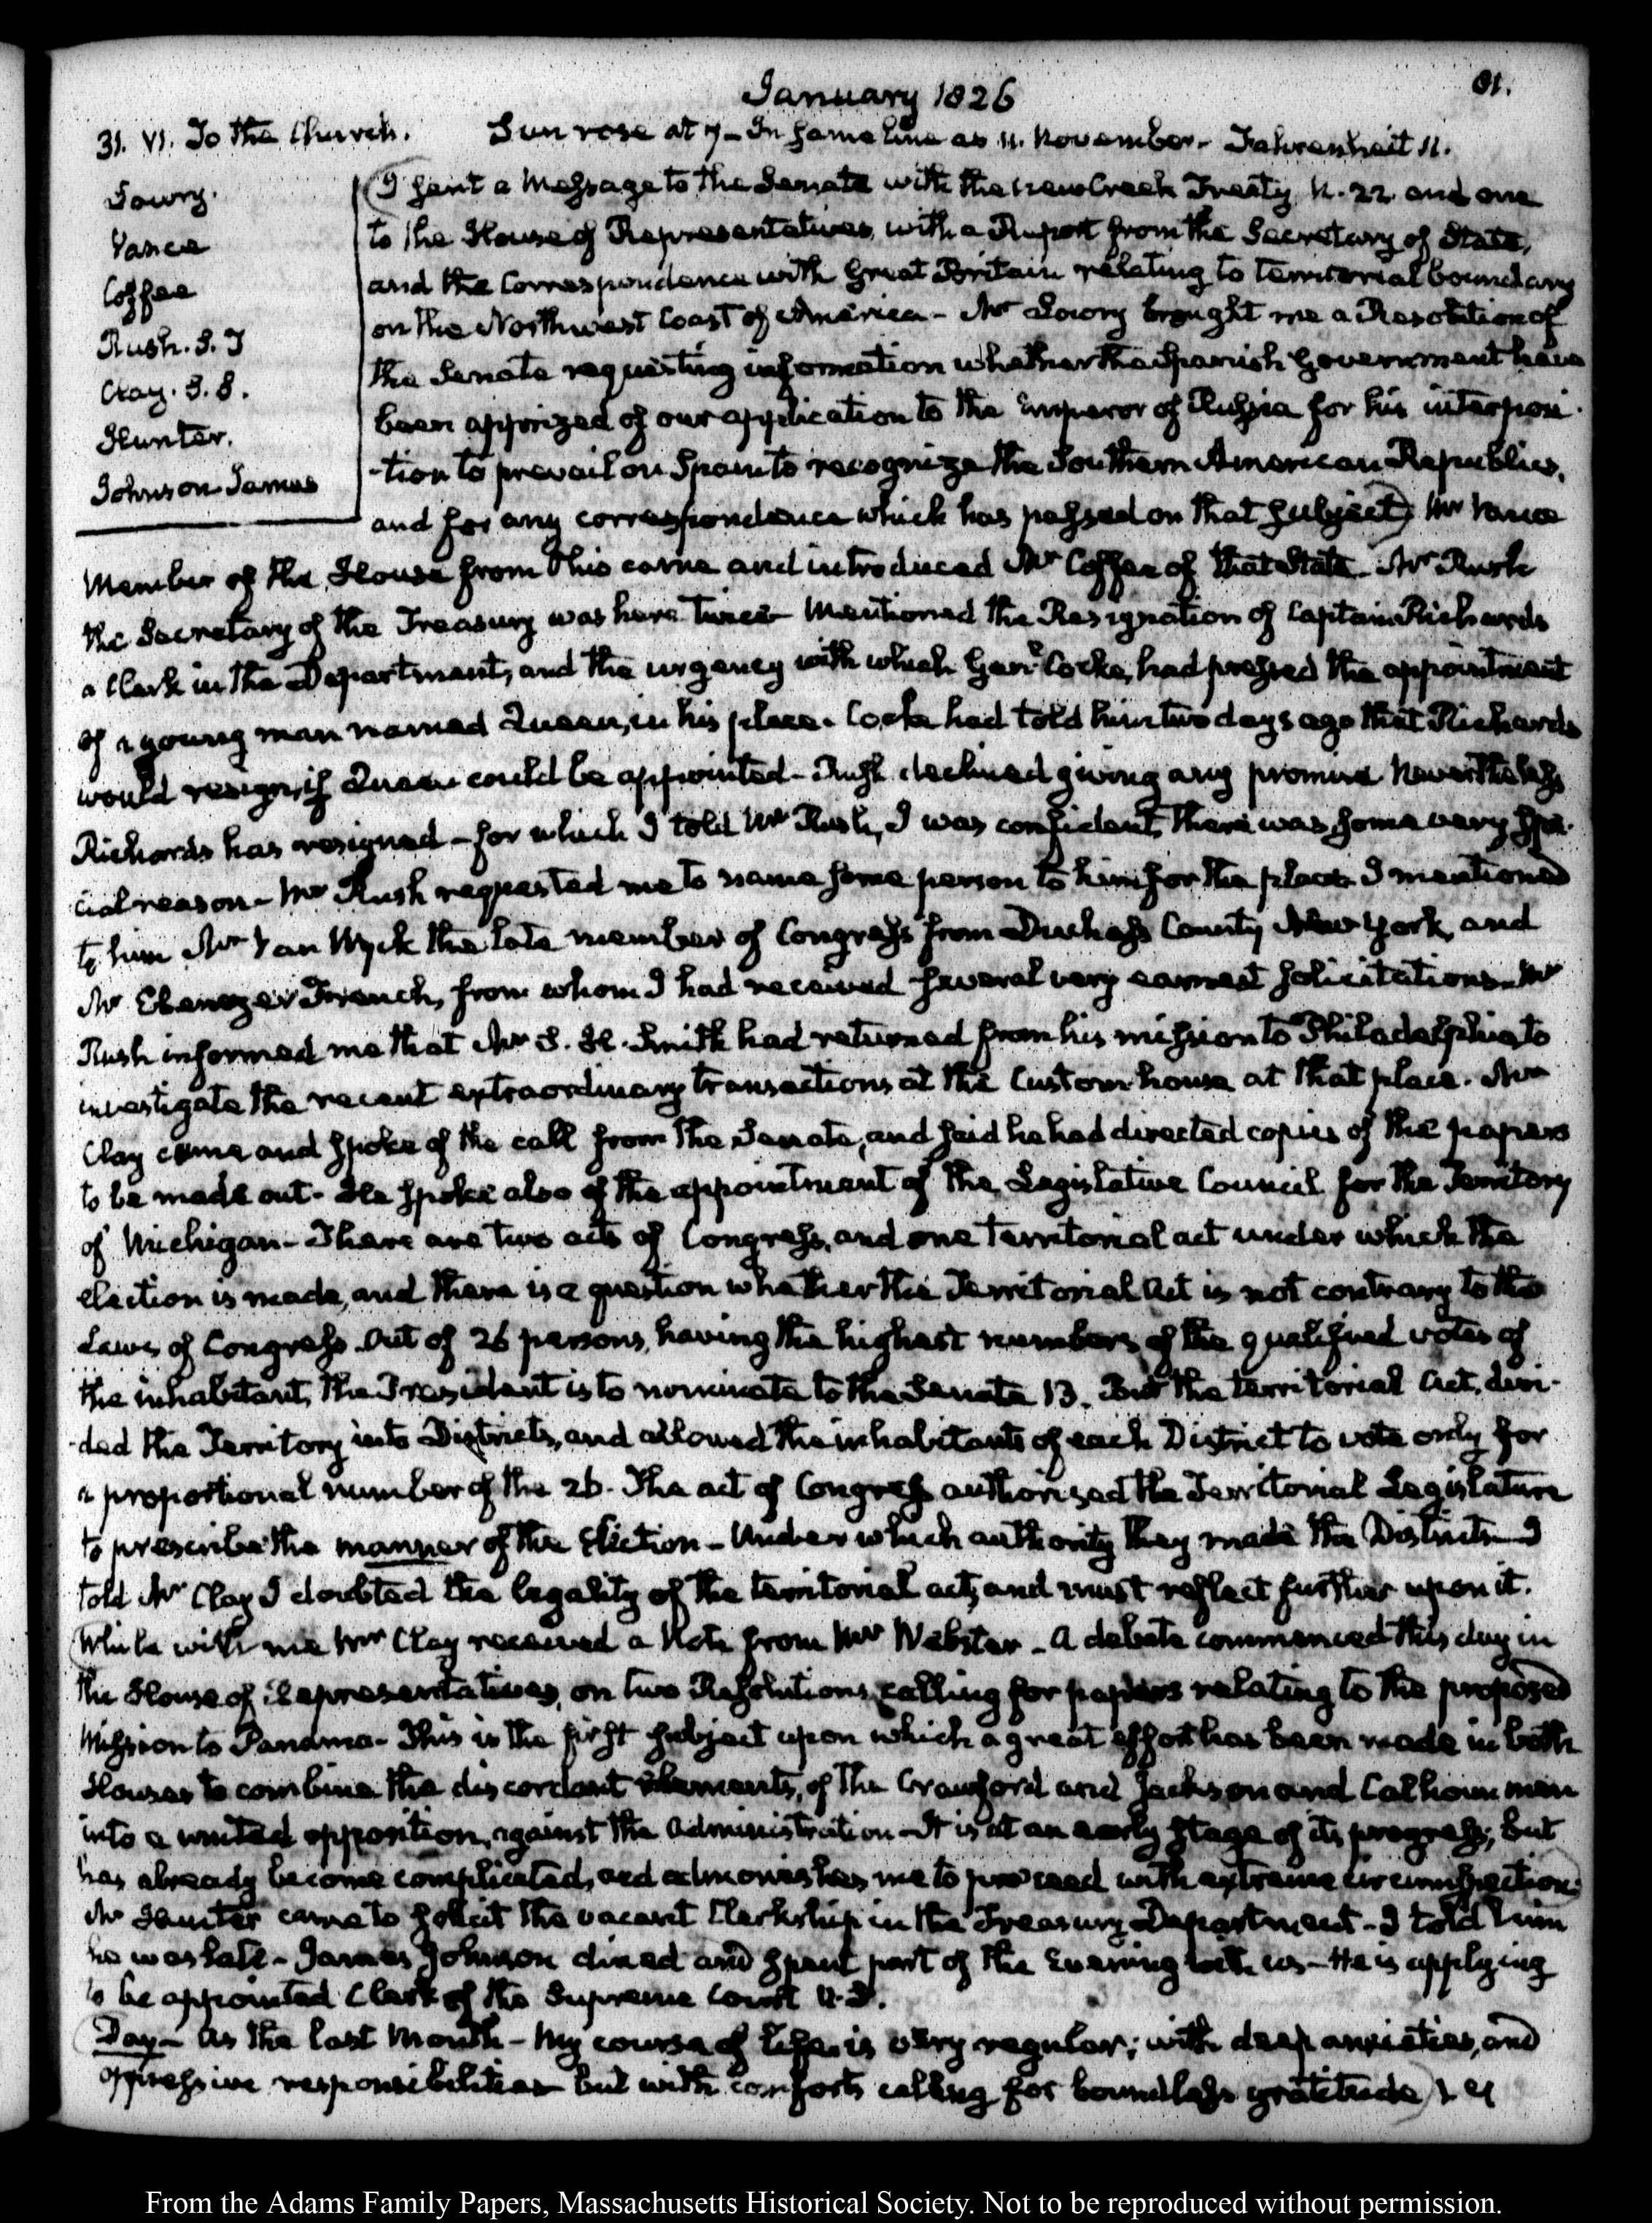 January 1826
81.
31. VI. To the Church. Sun rose at 7 - In same line as 11. November - Fahrenheit 11.
Lowry.
Vance
Coffee
Rush. S. T
Clay. S. S.
Hunter.
Johnson James
I sent a Message to the Senate with the new Creek Treaty, N. 22. and one
to the House of Representatives, with a Report from the Secretary of State,
and the Correspondence with Great Britain relating to territorial boundary
on the Northwest Coast of America - Mr Lowry brought me a Resolution of
the Senate requesting information whether the Spanish Government have
been apprized of our application to the Emperor of Russia for his interposi-
-tion to prevail on Spain to recognize the Southern American Republics,
and for any correspondence which has passed on that subject) Mr Vance
Member of the House from Ohio came and introduced Mr Coffee of that State. Mr Rush
the Secretary of the Treasury was here twice - Mentioned the Resignation of Captain Richards
a Clerk in the Department, and the urgency with which Genl. Cocke, had pressed the appointment
of a young man named Queen, in his place. Cocke had told him two days ago that Richards
would resign, if Queen could be appointed - Rush declined giving any promise Nevertheless
Richards has resigned - for which I told Mr Rush, I was confident, there was some very spe-
cial reason - Mr Rush requested me to name some person to him for the place - I mentioned
to him Mr Van Wyck the late member of Congress from Duchess County New York, and
Mr Ebenezer French, from whom I had received several very earnest solicitations - Mr
Rush informed me that Mr S. H. Smith had returned from his mission to Philadelphia to
investigate the recent extraordinary transactions at the Custom-house at that place. Mr
Clay came and spoke of the call from the Senate, and said he had directed copies of the papers
to be made out - He spoke also of the appointment of the Legislative Council for the Territory
of Michigan - There are two acts of Congress, and one Territorial act under which the
election is made, and there is a question whether the Territorial Act is not contrary to the
Laws of Congress. Out of 26 persons, having the highest numbers of the qualified votes of
the inhabitants, the President is to nominate to the Senate 13. But the territorial Act, divi-
-ded the Territory into Districts, and allowed the inhabitants of each District to vote only for
a proportional number of the 26. The act of Congress authorized the Territorial Legislature
to prescribe the manner of the Election - Under which authority they made the Districts - I
told Mr Clay I doubted the legality of the territorial act, and must reflect further upon it.
(While with me Mr Clay received a Note from Mr Webster - A debate commenced this day in
the House of Representatives, on two Resolutions calling for papers relating to the proposed
Mission to Panama - This is the first subject upon which a great effort has been made in both
Houses to combine the discordant elements, of the Crawford and Jackson and Calhoun men
into a united opposition, against the Administration - It is at an early stage of its progress; but
has already become complicated, and admonishes me to proceed with extreme circumspection)
Mr Hunter came to solicit the vacant Clerkship in the Treasury Department - I told him
he was late - James Johnson dined and spent part of the Evening with us - He is applying
to be appointed Clerk of the Supreme Court U.S.
(Day - As the last Month - My course of life is very regular; with deep anxieties, and
oppressive responsibilities - but with comforts calling for boundless gratitude)
From the Adams Family Papers, Massachusetts Historical Society. Not to be reproduced without permission.